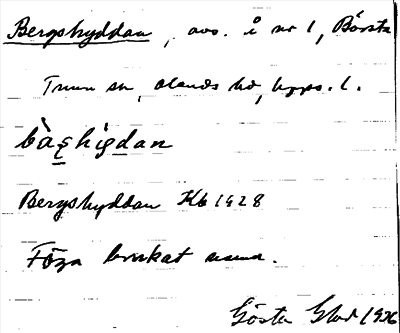 Bergshyddan, avs. å nr 1, Börsta
Truun sn, ölands hd, Upps. l.
bàs̨hig̱dan
Bergshyddan Kb 1928
Föga brukat namn.
Gösta Glad 1936